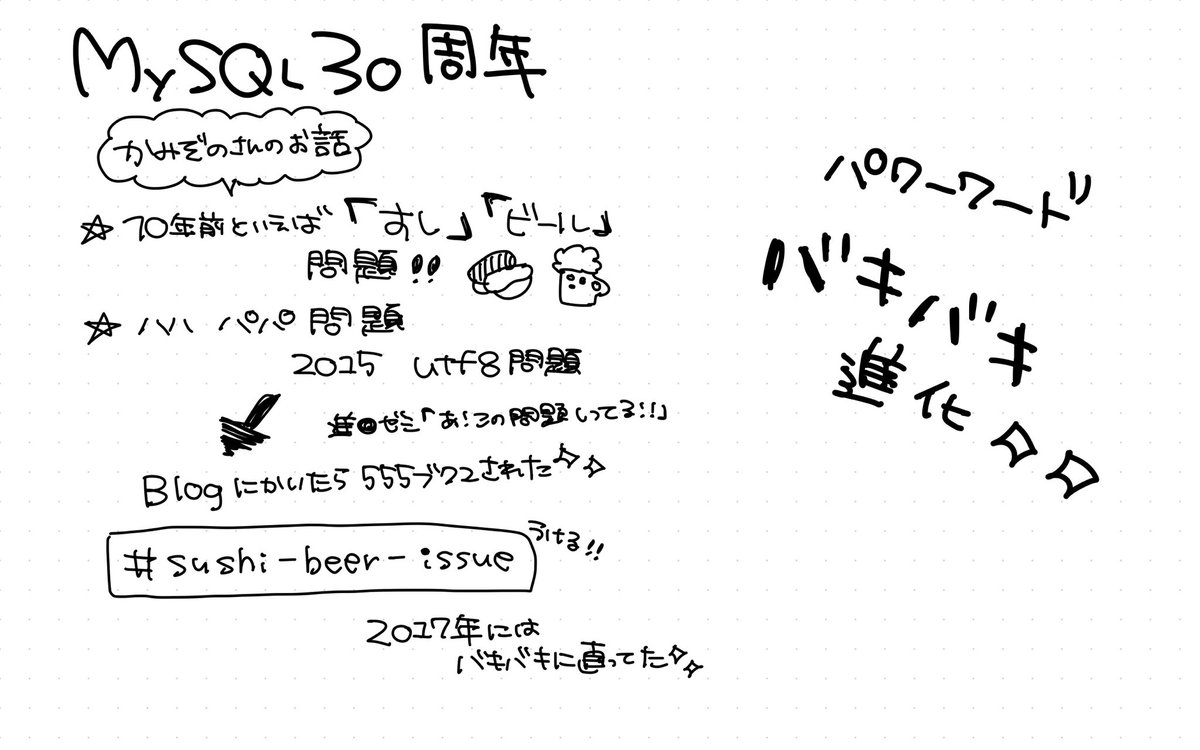 MySQL30周年
かみぞのさんのお話
☆ 10年前といえば「すし」「ビール」
問題!!
☆ ハハ パパ 問題
2015 utf8問題
進◎ゼミ「あ!この問題しってる!!」
Blogにかいたら555ブクマされた
#sushi-beer-issue
うける!!
2017年には
バキバキに直ってた
パワーワード
バキバキ
進化